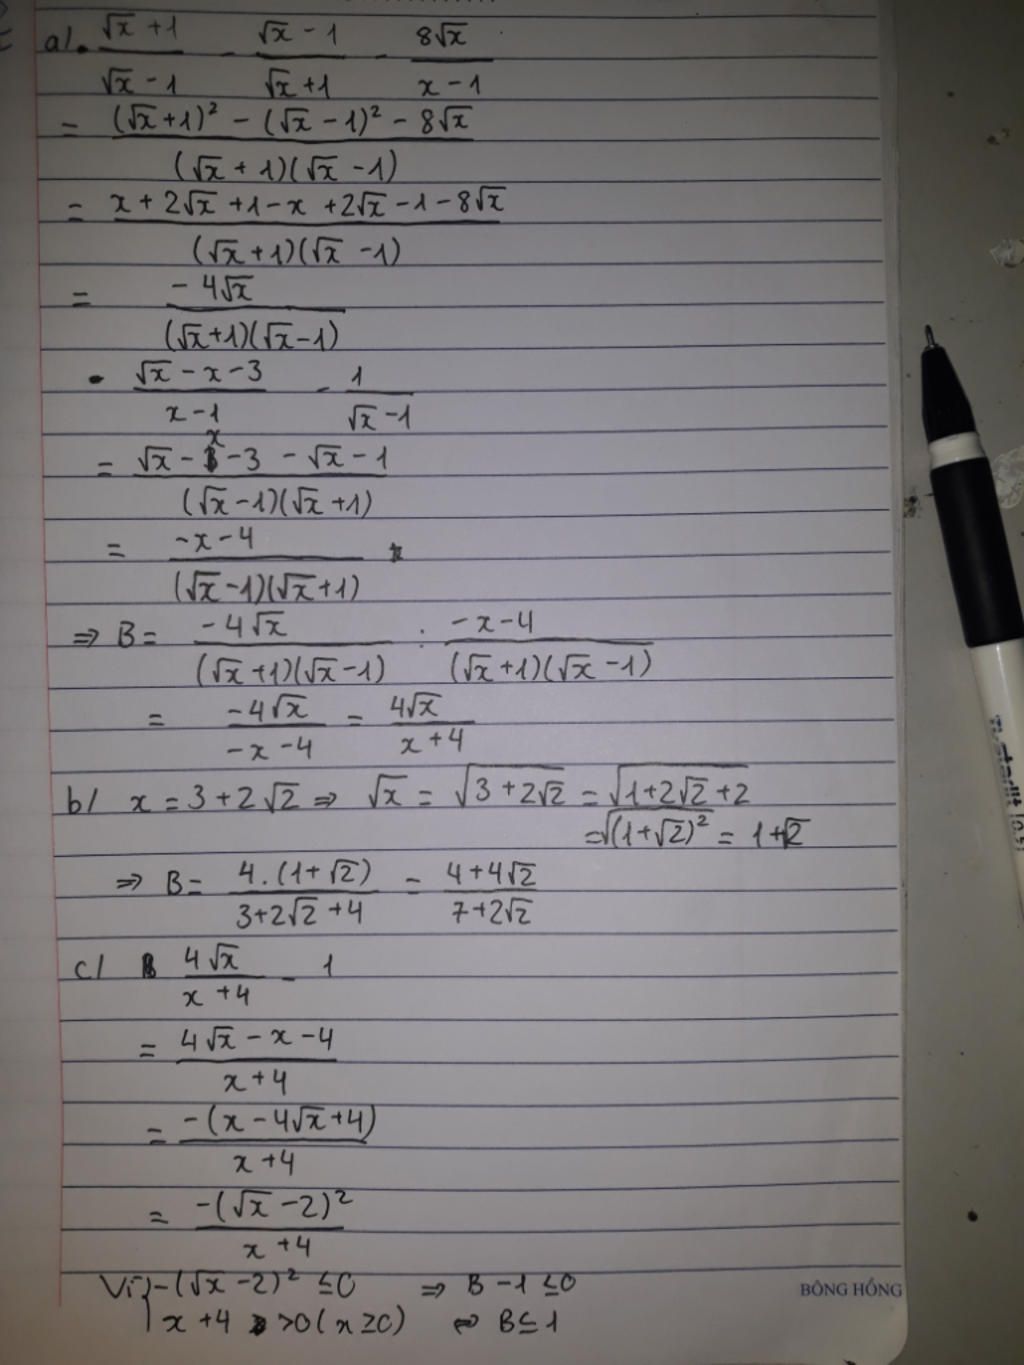 a/. (√x + 1)/(√x - 1) - (√x - 1)/(√x + 1) - 8√x/(x - 1)
= ((√x + 1)² - (√x - 1)² - 8√x)/((√x + 1)(√x - 1))
= (x + 2√x + 1 - x + 2√x - 1 - 8√x)/((√x + 1)(√x - 1))
= (- 4√x)/((√x + 1)(√x - 1))
• (√x - x - 3)/(x - 1) - 1/(√x - 1)
= (√x - x - 3 - √x - 1)/((√x - 1)(√x + 1))
= (-x - 4)/((√x - 1)(√x + 1))
⇒ B = (-4√x)/((√x + 1)(√x - 1)) : (-x - 4)/((√x + 1)(√x - 1))
= (-4√x)/(-x - 4) = 4√x/(x + 4)
b/ x = 3 + 2√2 ⇒ √x = √(3 + 2√2) = √(1 + 2√2 + 2)
= √((1 + √2)²) = 1 + √2
⇒ B = (4.(1 + √2))/(3 + 2√2 + 4) = (4 + 4√2)/(7 + 2√2)
c/ 4√x/(x + 4) - 1
= (4√x - x - 4)/(x + 4)
= (-(x - 4√x + 4))/(x + 4)
= (-(√x - 2)²)/(x + 4)
Vì { -(√x - 2)² ≤ 0 ⇒ B - 1 ≤ 0
x + 4 > 0 (x ≥ 0) ⇔ B ≤ 1
BÔNG HỒNG